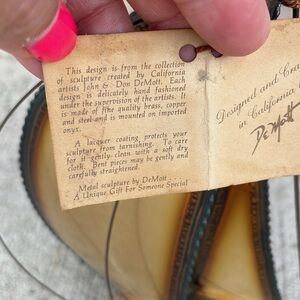 This design is from the collection
of sculpture created by California
artists John & Don DeMott. Each
design is delicately hand fashioned
under the supervision of the artists. It
is made of fine quality brass, copper
and steel and is mounted on imported
onyx.
A lacquer coating protects your
sculpture from tarnishing. To care
for it gently clean with a soft dry
cloth. Bent pieces may be gently and
carefully straightened.
Metal sculpture by DeMott
A Unique Gift For Someone Special
Designed and Crea
in California
DeMott